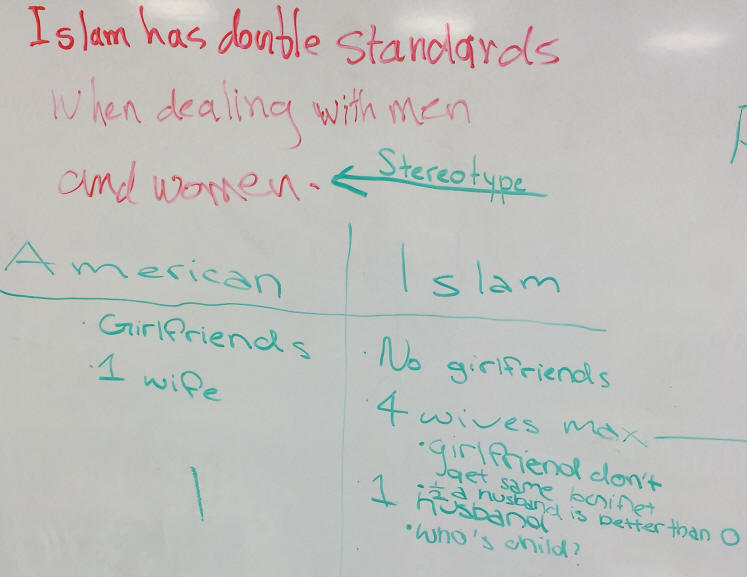 Islam has double standards
when dealing with men
and women.
Stereotype
American
Islam
· Girlfriends
· 1 wife
· No girlfriends
· 4 wives max
· girlfriend don't
get same benifet
· 1/2 a husband is better than 0
· 1 husband
· who's child?